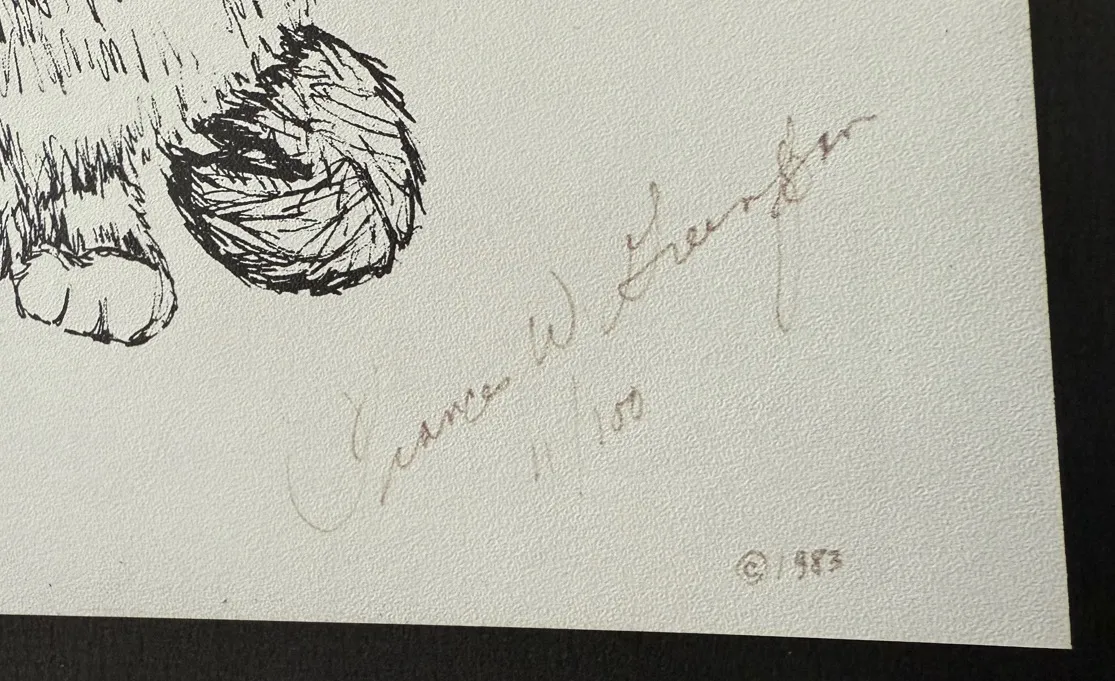 Frances W.
11/100
© 1983